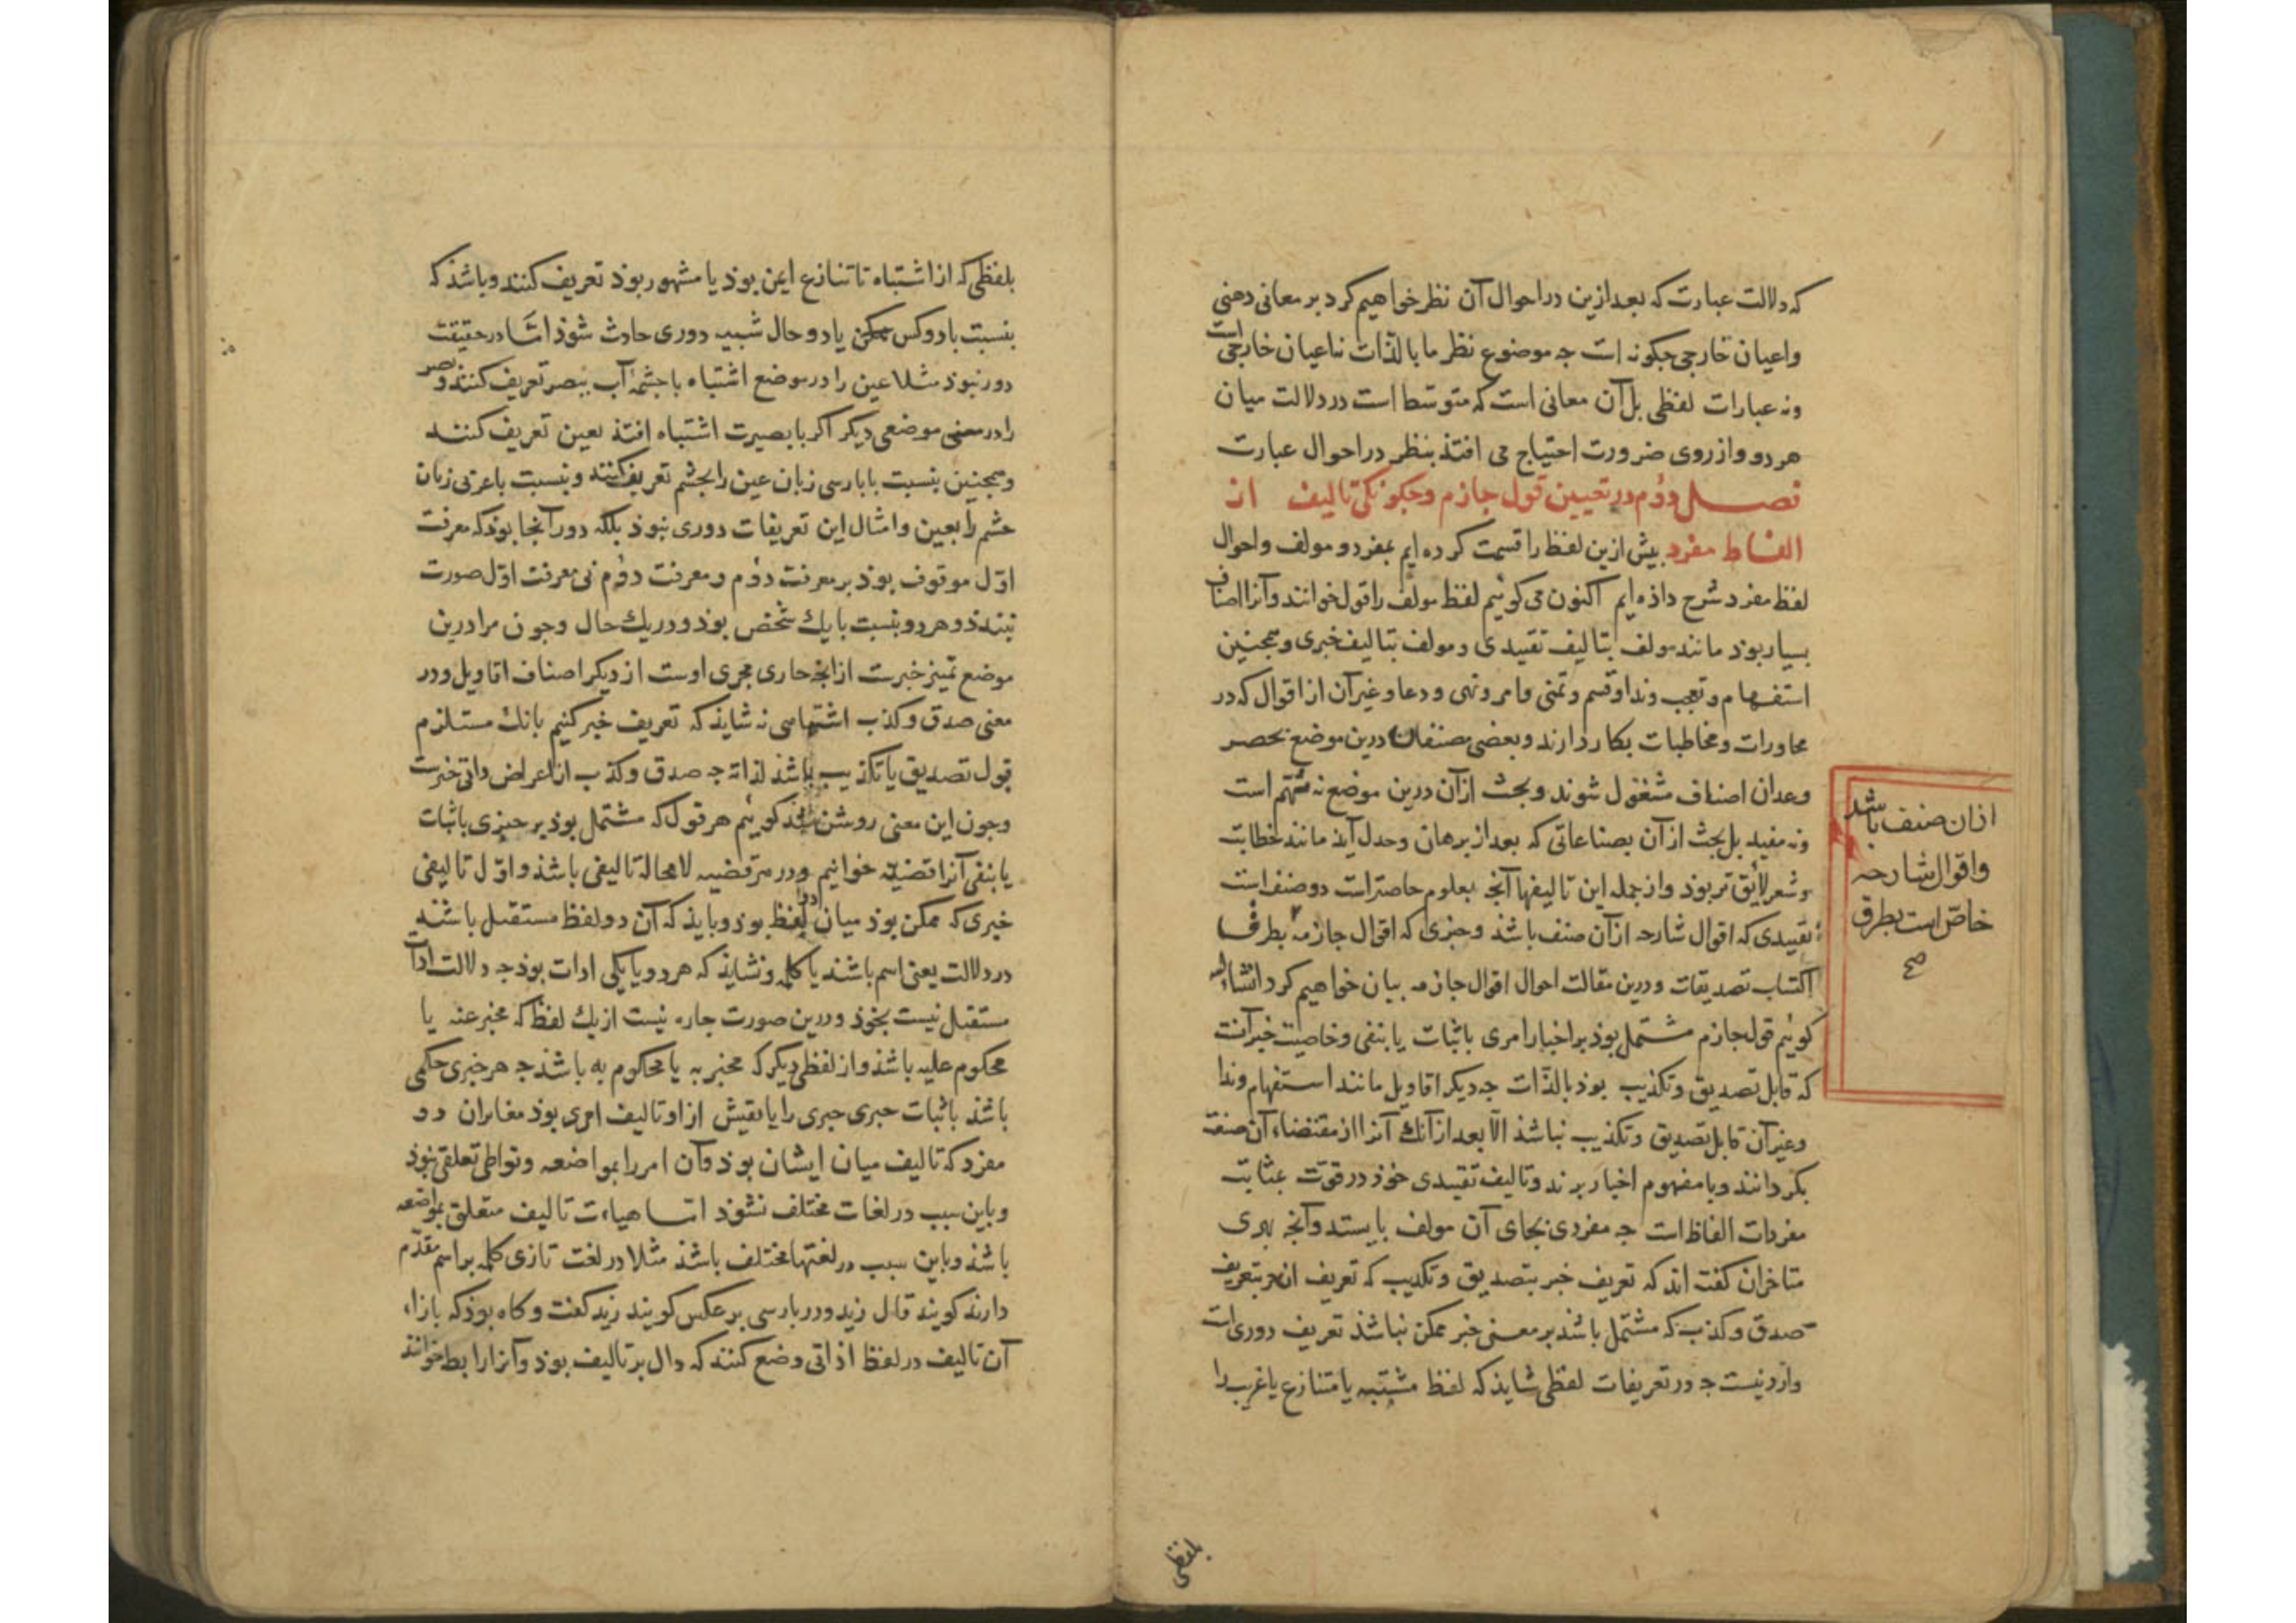 که دلالت عبارت که بعد ازین در احوال آن نظر خواهیم کرد بر معانی ذهنی
واعیان خارجی جکونه است جه موضوع نظر ما بالذات نه اعیان خارجی است
ونه عبارات لفظی بل آن معانی است که متوسط است در دلالت میان
هر دو واز روی ضرورت احتیاج می افتذ بنظر در احوال عبارت
فصل دوم در تعیین قول جازم وجکونکی تالیف از
الفاظ مفرد بیش ازین لفظ را قسمت کرده ایم بمفرد و مولف واحوال
لفظ مفرد شرح داذه ایم اکنون می کوئیم لفظ مولف را قول خوانند وآنرا اصناف
بسیار بوذ مانند مولف بتالیف تقییدی ومولف بتالیف خبری وهمجنین
استفهام وتعجب وندا وقسم وتمنی وامر ونهی ودعا وغیر آن از اقوال که در
محاورات ومخاطبات بکار دارند وبعضی مصنفان درین موضع بحصر
وعد آن اصناف مشغول شوند وبحث از آن درین موضع نه مهم است
ونه مفید بل بحث از آن بصناعاتی که بعد از برهان وجدل آید مانند خطابت
وشعر لایق تر بوذ واز جمله این تالیفها آنجه بعلوم خاصتر است دو صنف است
تقییدی که اقوال شارحه از آن صنف باشذ وخبری که اقوال جازمه بطرف
از آن صنف باشد
واقوال شارحه
خاص است بطرق
صح
اکتساب تصدیقات ودرین مقالت احوال اقوال جازمه بیان خواهیم کرد انشاءالله
کوئیم قول جازم مشتمل بوذ بر اخبار امری باثبات یا بنفی وخاصیت خبر آنست
که قابل تصدیق وتکذیب بوذ بالذات جه دیکر اقاویل مانند استفهام وندا
وغیر آن قابل تصدیق وتکذیب نباشذ الا بعد از آنک آنرا از مقتضاء آن صنف
بکردانند وبا مفهوم اخبار برند وتالیف تقییدی خوذ در قوت بمثابت
مفردات الفاظ است جه مفردی بجای آن مولف بایستد وآنجه بهری
متاخران کفته اند که تعریف خبر بتصدیق وتکذیب که تعریف آن جز بتعریف
صدق وکذب که مشتمل باشد بر معنی خبر ممکن نباشذ تعریف دوری است
وارد نیست جه در تعریفات لفظی شایذ که لفظ مشتبه یا متنازع یا غریب را
بلفظی
بلفظی که از اشتباه تا تنازع ایمن بوذ یا مشهور بوذ تعریف کنند وباشذ که
بنسبت با دو کس یا دو حال شبیه دوری حادث شوذ اما در حقیقت
دور نبوذ مثلا عین را در موضع اشتباه با جشمه آب ببصر تعریف کنند وبصر
را در موضعی دیکر اکر با بصیرت اشتباه افتذ بعین تعریف کنند
وهمجنین بنسبت با پارسی زبان عین را بجشم تعریف کنند وبنسبت با عربی زبان
جشم را بعین وامثال این تعریفات دوری نبوذ بلکه دور آنجا بوذ که معرفت
اول موقوف بوذ بر معرفت دوم ومعرفت دوم بی معرفت اول صورت
نبندذ وهر دو بنسبت با یک شخص بوذ ودر یک حال وجون مراد درین
موضع تمیز خبرست از آنجه جاری مجری اوست از دیکر اصناف اقاویل ودر
معنی صدق وکذب اشتباهی نه شایذ که تعریف خبر کنیم بانک مستلزم
قول تصدیق یا تکذیب باشذ لذاته جه صدق وکذب از اعراض ذاتی خبرست
وجون این معنی روشن شد کوئیم هر قول که مشتمل بوذ بر خبری باثبات
یا بنفی آنرا قضیه خوانیم ودر هر قضیه لا محاله تالیفی باشذ واول تالیفی
خبری که ممکن بوذ میان دو لفظ بوذ وبایذ که آن دو لفظ مستقل باشند
در دلالت یعنی اسم باشند یا کلمه ونشایذ که هر دو یا یکی ادات بوذ جه دلالت ادات
مستقل نیست بخوذ ودرین صورت جاره نیست از یک لفظ که مخبر عنه یا
محکوم علیه باشذ واز لفظی دیکر که مخبر به یا محکوم به باشذ جه هر خبری حکمی
باشذ باثبات جیزی جیزی را یا نفیش ازو وتالیف امری بوذ مغایر آن دو
مفرد که تالیف میان ایشان بوذ وآن امر را بمواضعه وتواطی تعلقی نبوذ
وباین سبب در لغات مختلف نشوذ اما هیاءت تالیف متعلق بمواضعه
باشذ وباین سبب در لغتها مختلف باشذ مثلا در لغت تازی کلمه بر اسم مقدم
دارند کویند قال زید ودر بارسی بر عکس کویند زید کفت وکاه بوذ که بازاء
آن تالیف در لفظ اداتی وضع کنند که دال بر تالیف بوذ وآنرا رابطه خوانند